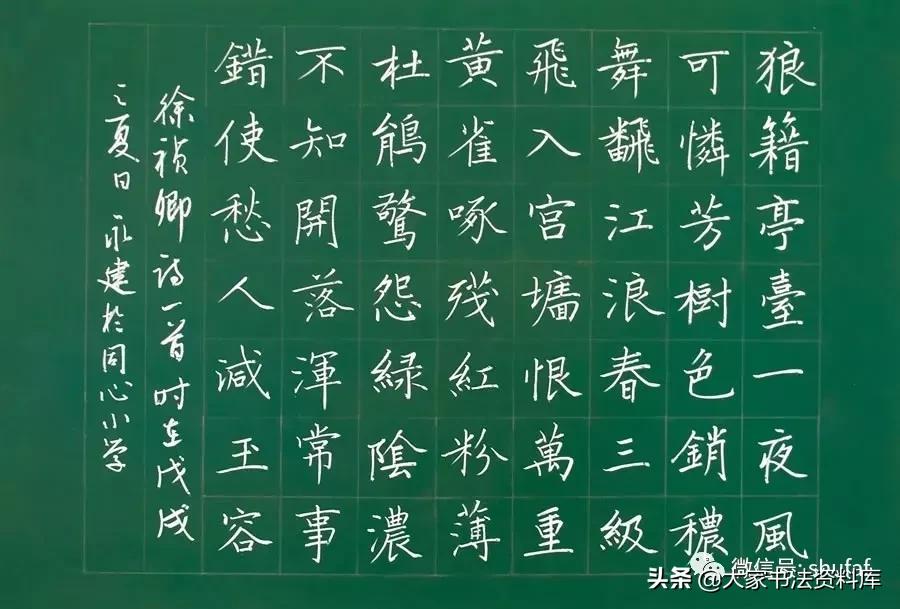 狼籍亭臺一夜風
可憐芳樹色銷穠
舞飜江浪春三級
飛入宮墻恨萬重
黃雀啄殘紅粉薄
杜鵑驚怨綠陰濃
不知開落渾常事
錯使愁人減玉容
徐禎卿詩一首时在戊戌
之夏日永建於同心小学
微信号: shufpf
头条 @大家书法资料库